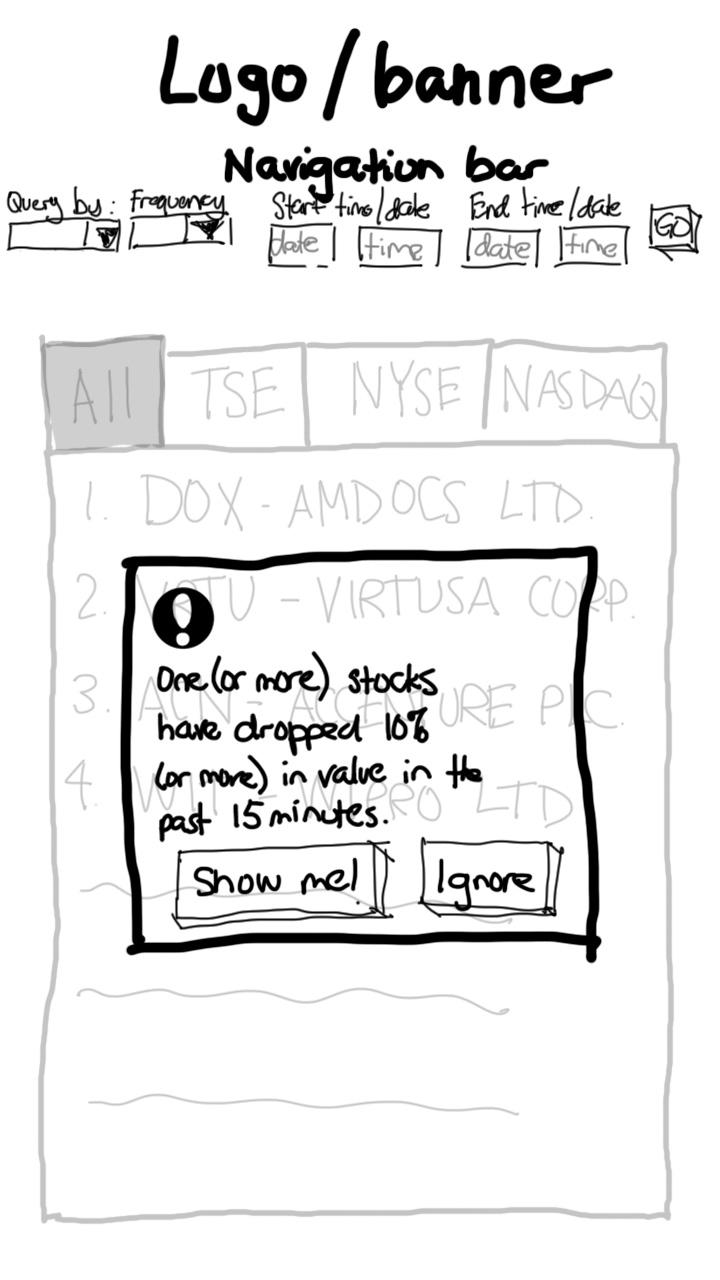 Logo/banner
Navigation bar
Query by: Frequency Start time/date End time/date
date time date time GO
All TSE NYSE NASDAQ
1. DOX - AMDOCS LTD.
2. VRTU - VIRTUSA CORP.
!
One (or more) stocks
3. ACN - ACCENTURE PLC.
have dropped 10%
(or more) in value in the
4. WIT - WIPRO LTD
past 15 minutes.
Show me! Ignore